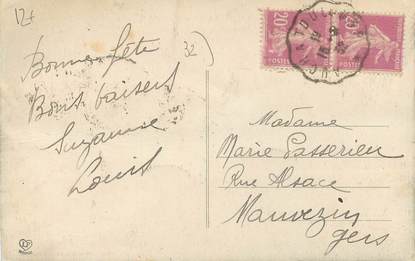 12+
32
Bonne fête
Bons baisers
Suzanne
Louis
20
Madame
Marie Passerieu
Rue Alsace
Mauvezin
gers